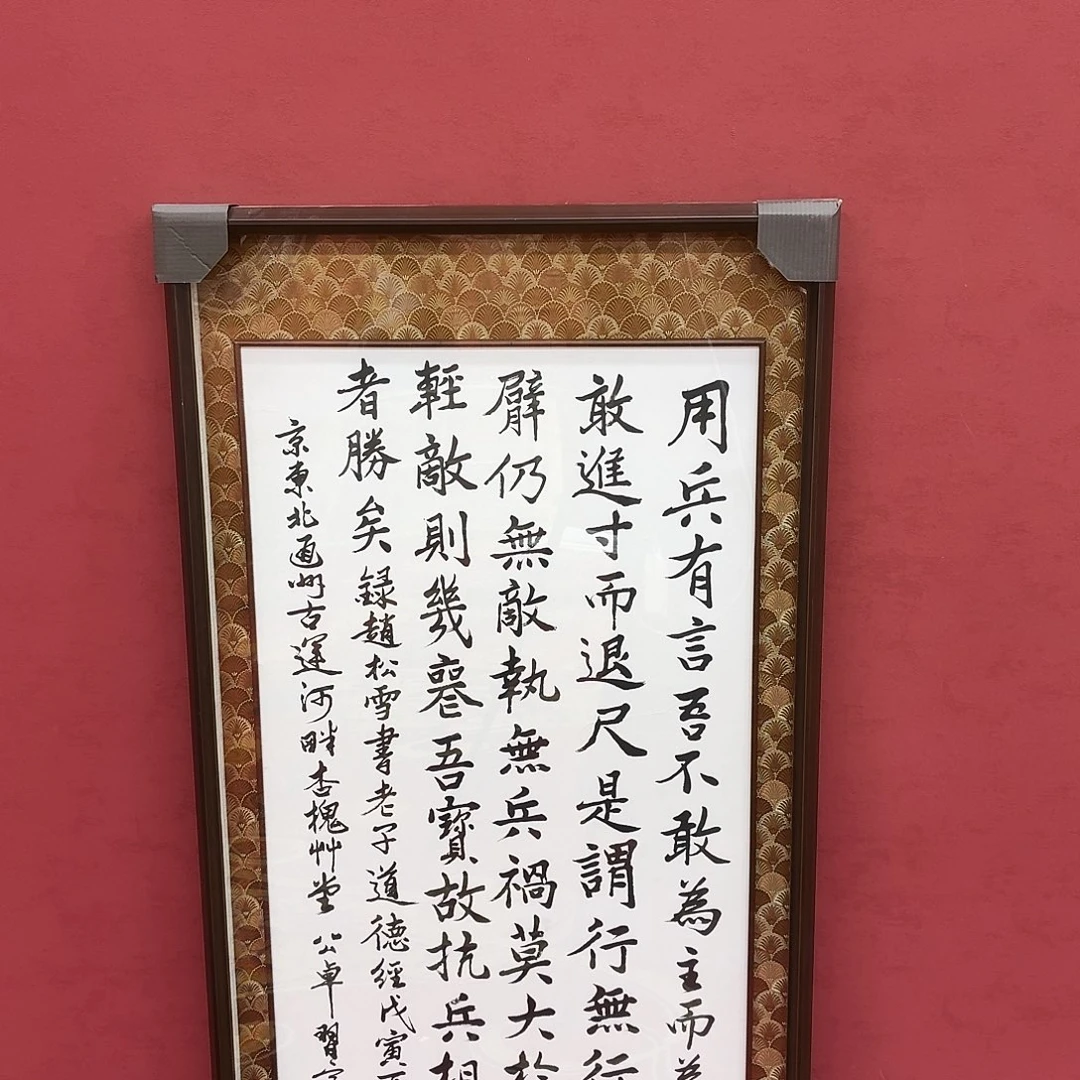 用兵有言吾不敢為主而為
敢進寸而退尺是謂行無行
臂仍無敵執無兵禍莫大於
輕敵則幾喪吾寶故抗兵相
者勝矣錄趙松雪書老子道德經戊寅
京東北通州古運河畔杏槐艸堂公卓習字